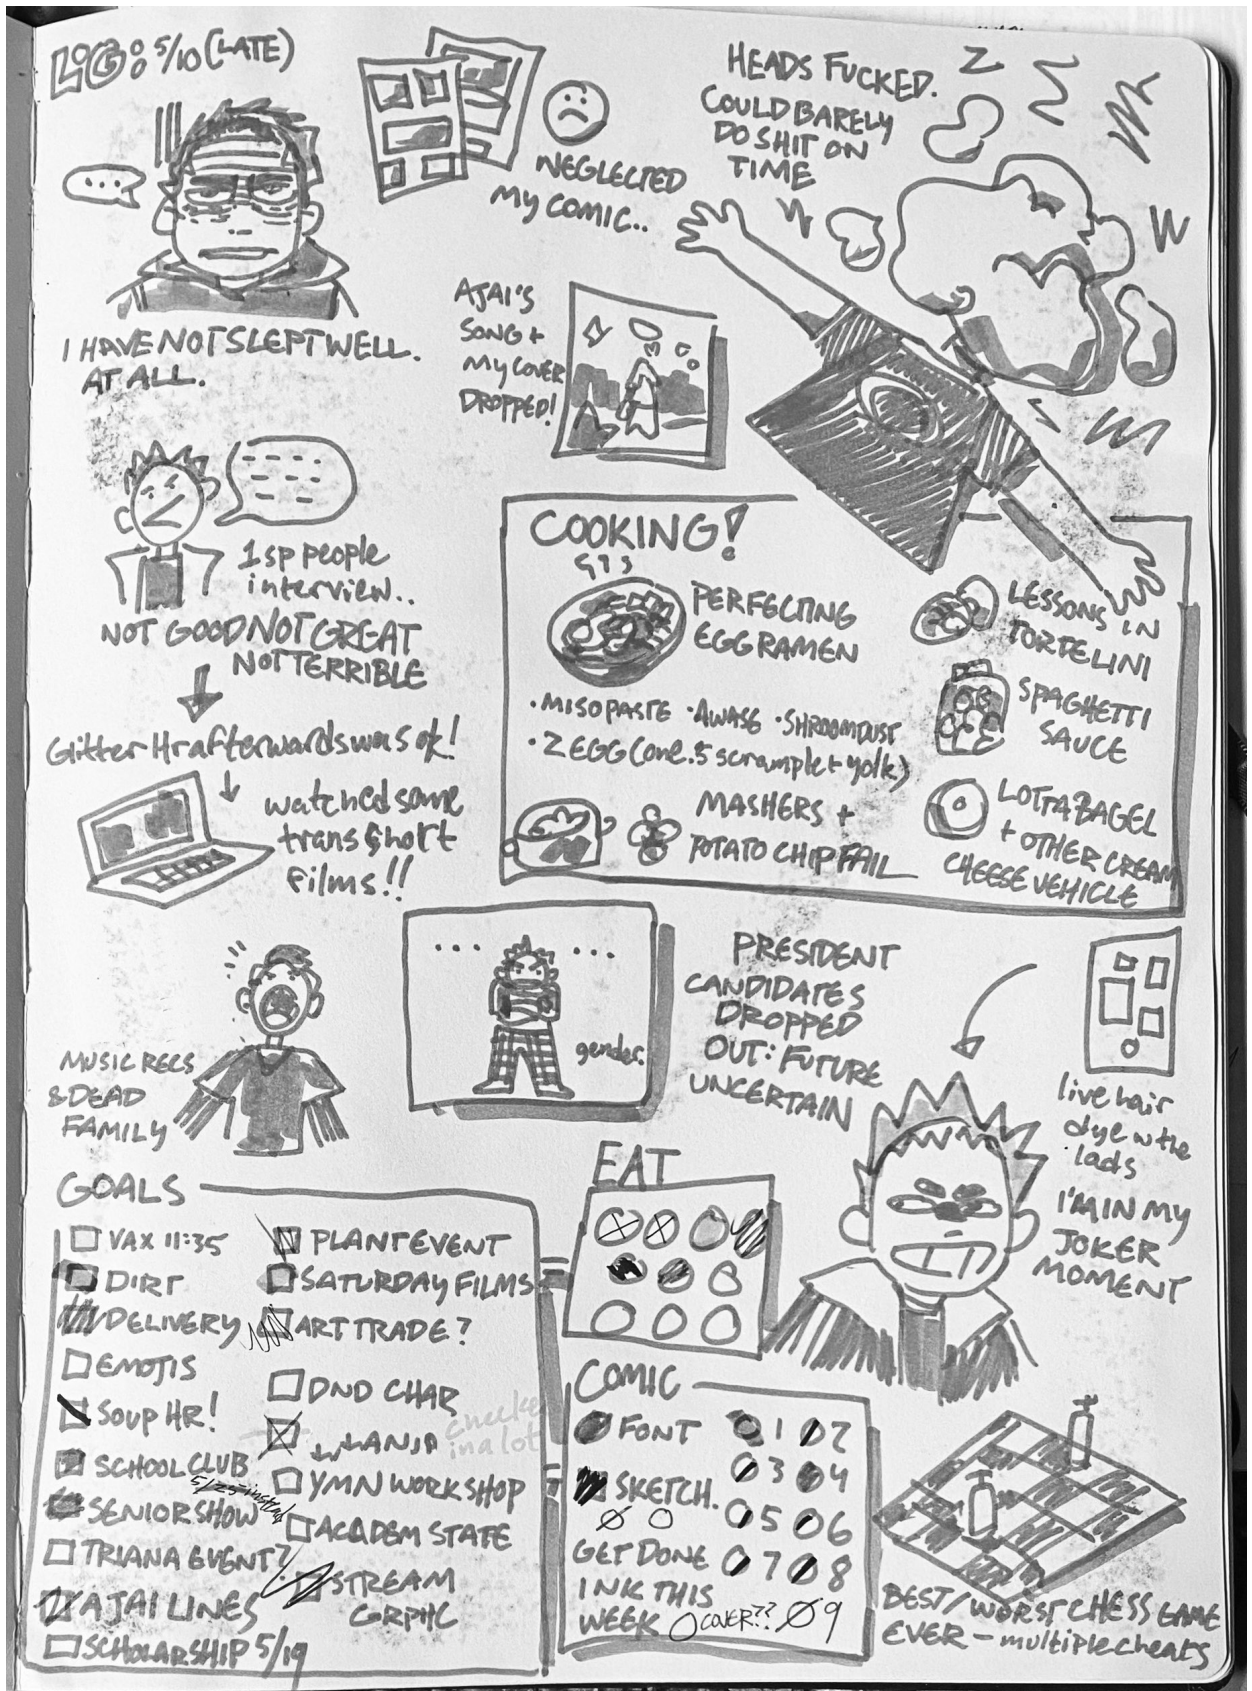 LOG: 5/10 (LATE)
...
I HAVE NOT SLEPT WELL.
AT ALL.
NEGLECTED
MY COMIC..
HEADS FUCKED.
COULD BARELY
DO SHIT ON
TIME
Z
AJAI'S
SONG +
MY COVER
DROPPED!
1sp people
interview..
NOT GOOD NOT GREAT
NOT TERRIBLE
Glitter Hr afterwards was ok!
watched some
trans short
films!!
COOKING!
PERFECTING
EGG RAMEN
• MISO PASTE • AWASE • SHROOM DUST
• 2 EGG (one .5 scrample + yolk)
MASHERS +
POTATO CHIP FAIL
LESSONS IN
TORTELINI
SPAGHETTI
SAUCE
LOTTA BAGEL
+ OTHER CREAM
CHEESE VEHICLE
MUSIC RECS
& DEAD
FAMILY
... ...
gender.
PRESIDENT
CANDIDATES
DROPPED
OUT: FUTURE
UNCERTAIN
live hair
dye w the
lads
I'M IN MY
JOKER
MOMENT
GOALS
VAX 11:35
DIRT
DELIVERY
EMOJIS
SOUP HR!
SCHOOL CLUB
SENIOR SHOW
TRIANA EVENT?
AJAI LINES
SCHOLARSHIP 5/19
PLANT EVENT
SATURDAY FILMS
ART TRADE?
DND CHAR
checked
in a lot
YMN WORKSHOP
ACADEM STATE
STREAM
GRPHC
EAT
COMIC
FONT
SKETCH.
GET DONE
INK THIS
WEEK
COVER??
1 2
3 4
5 6
7 8
9
BEST/WORST CHESS GAME
EVER – multiple cheats